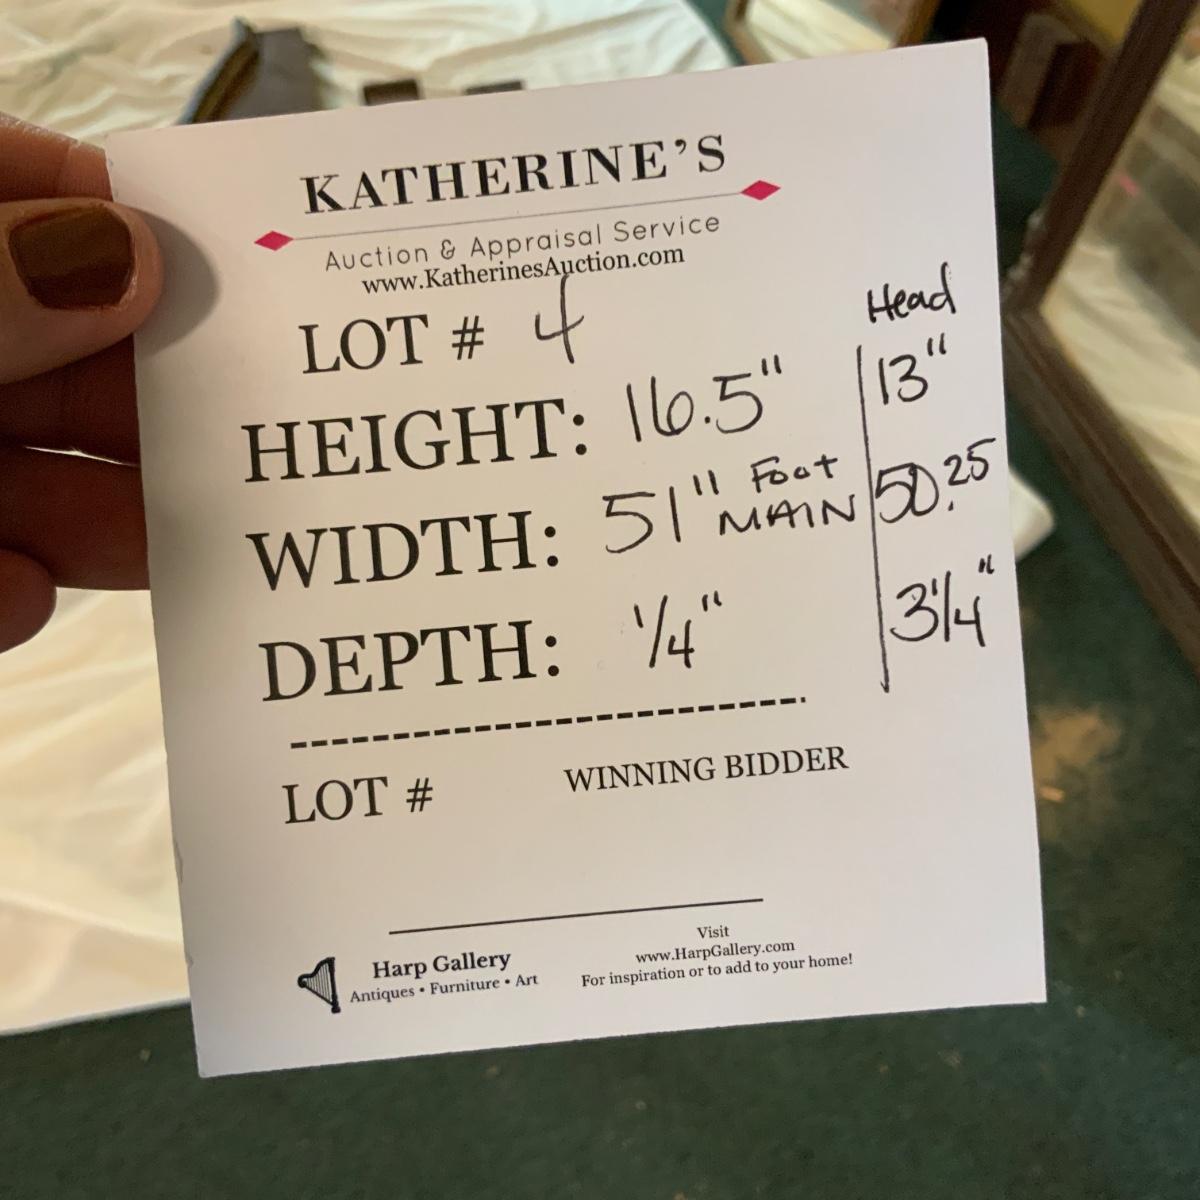 KATHERINE'S
Auction & Appraisal Service
www.KatherinesAuction.com
LOT # 4
Head
HEIGHT: 16.5" 13"
WIDTH: 51" Foot MAIN 50.25
DEPTH: 1/4" 3 1/4"
LOT # WINNING BIDDER
Harp Gallery
Antiques • Furniture • Art
Visit
www.HarpGallery.com
For inspiration or to add to your home!